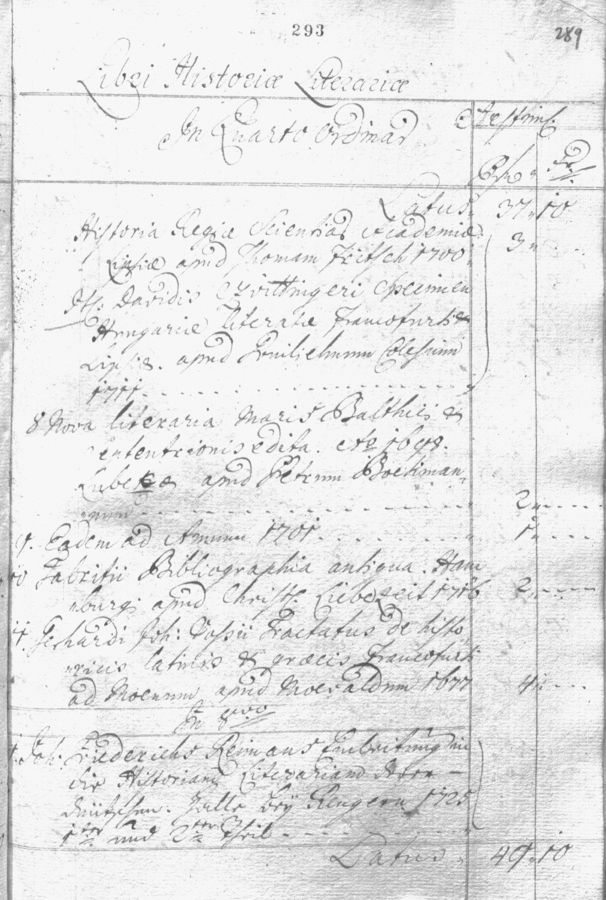 293
289
Libri Historiæ Literariæ
In Quarto Ordinar
Latus. 37. 10
Historia Regiæ Scientias Academiæ 3.
Lipsiæ apud Thomam Fritsch 1700.
Davidis Czvittingeri Specimen
Hungariæ literatæ Francofurti &
Lipsiæ. apud
1711.
8 Nova literaria Maris Balthici &
edita. 1698.
Lubecæ apud Petrum Boeckman-
num 2.
9. Eadem ad Annum 1701 1.
10 Fabritii Bibliographia antiqua. Ham
burgi apud Christ. Liebezeit 1716 2.
11. Gerhardi Joh: Vossii Tractatus de histo
ricis latinis & græcis Francofurti
ad Moenum apud 1677 4.
In 8vo
1. Joh. Friderichs Reimans Einleitung in
die Historiam Literariam derer
Teutschen. Halle bey Rengern 1725
1ter und 2ter Theil
Latus. 49. 10